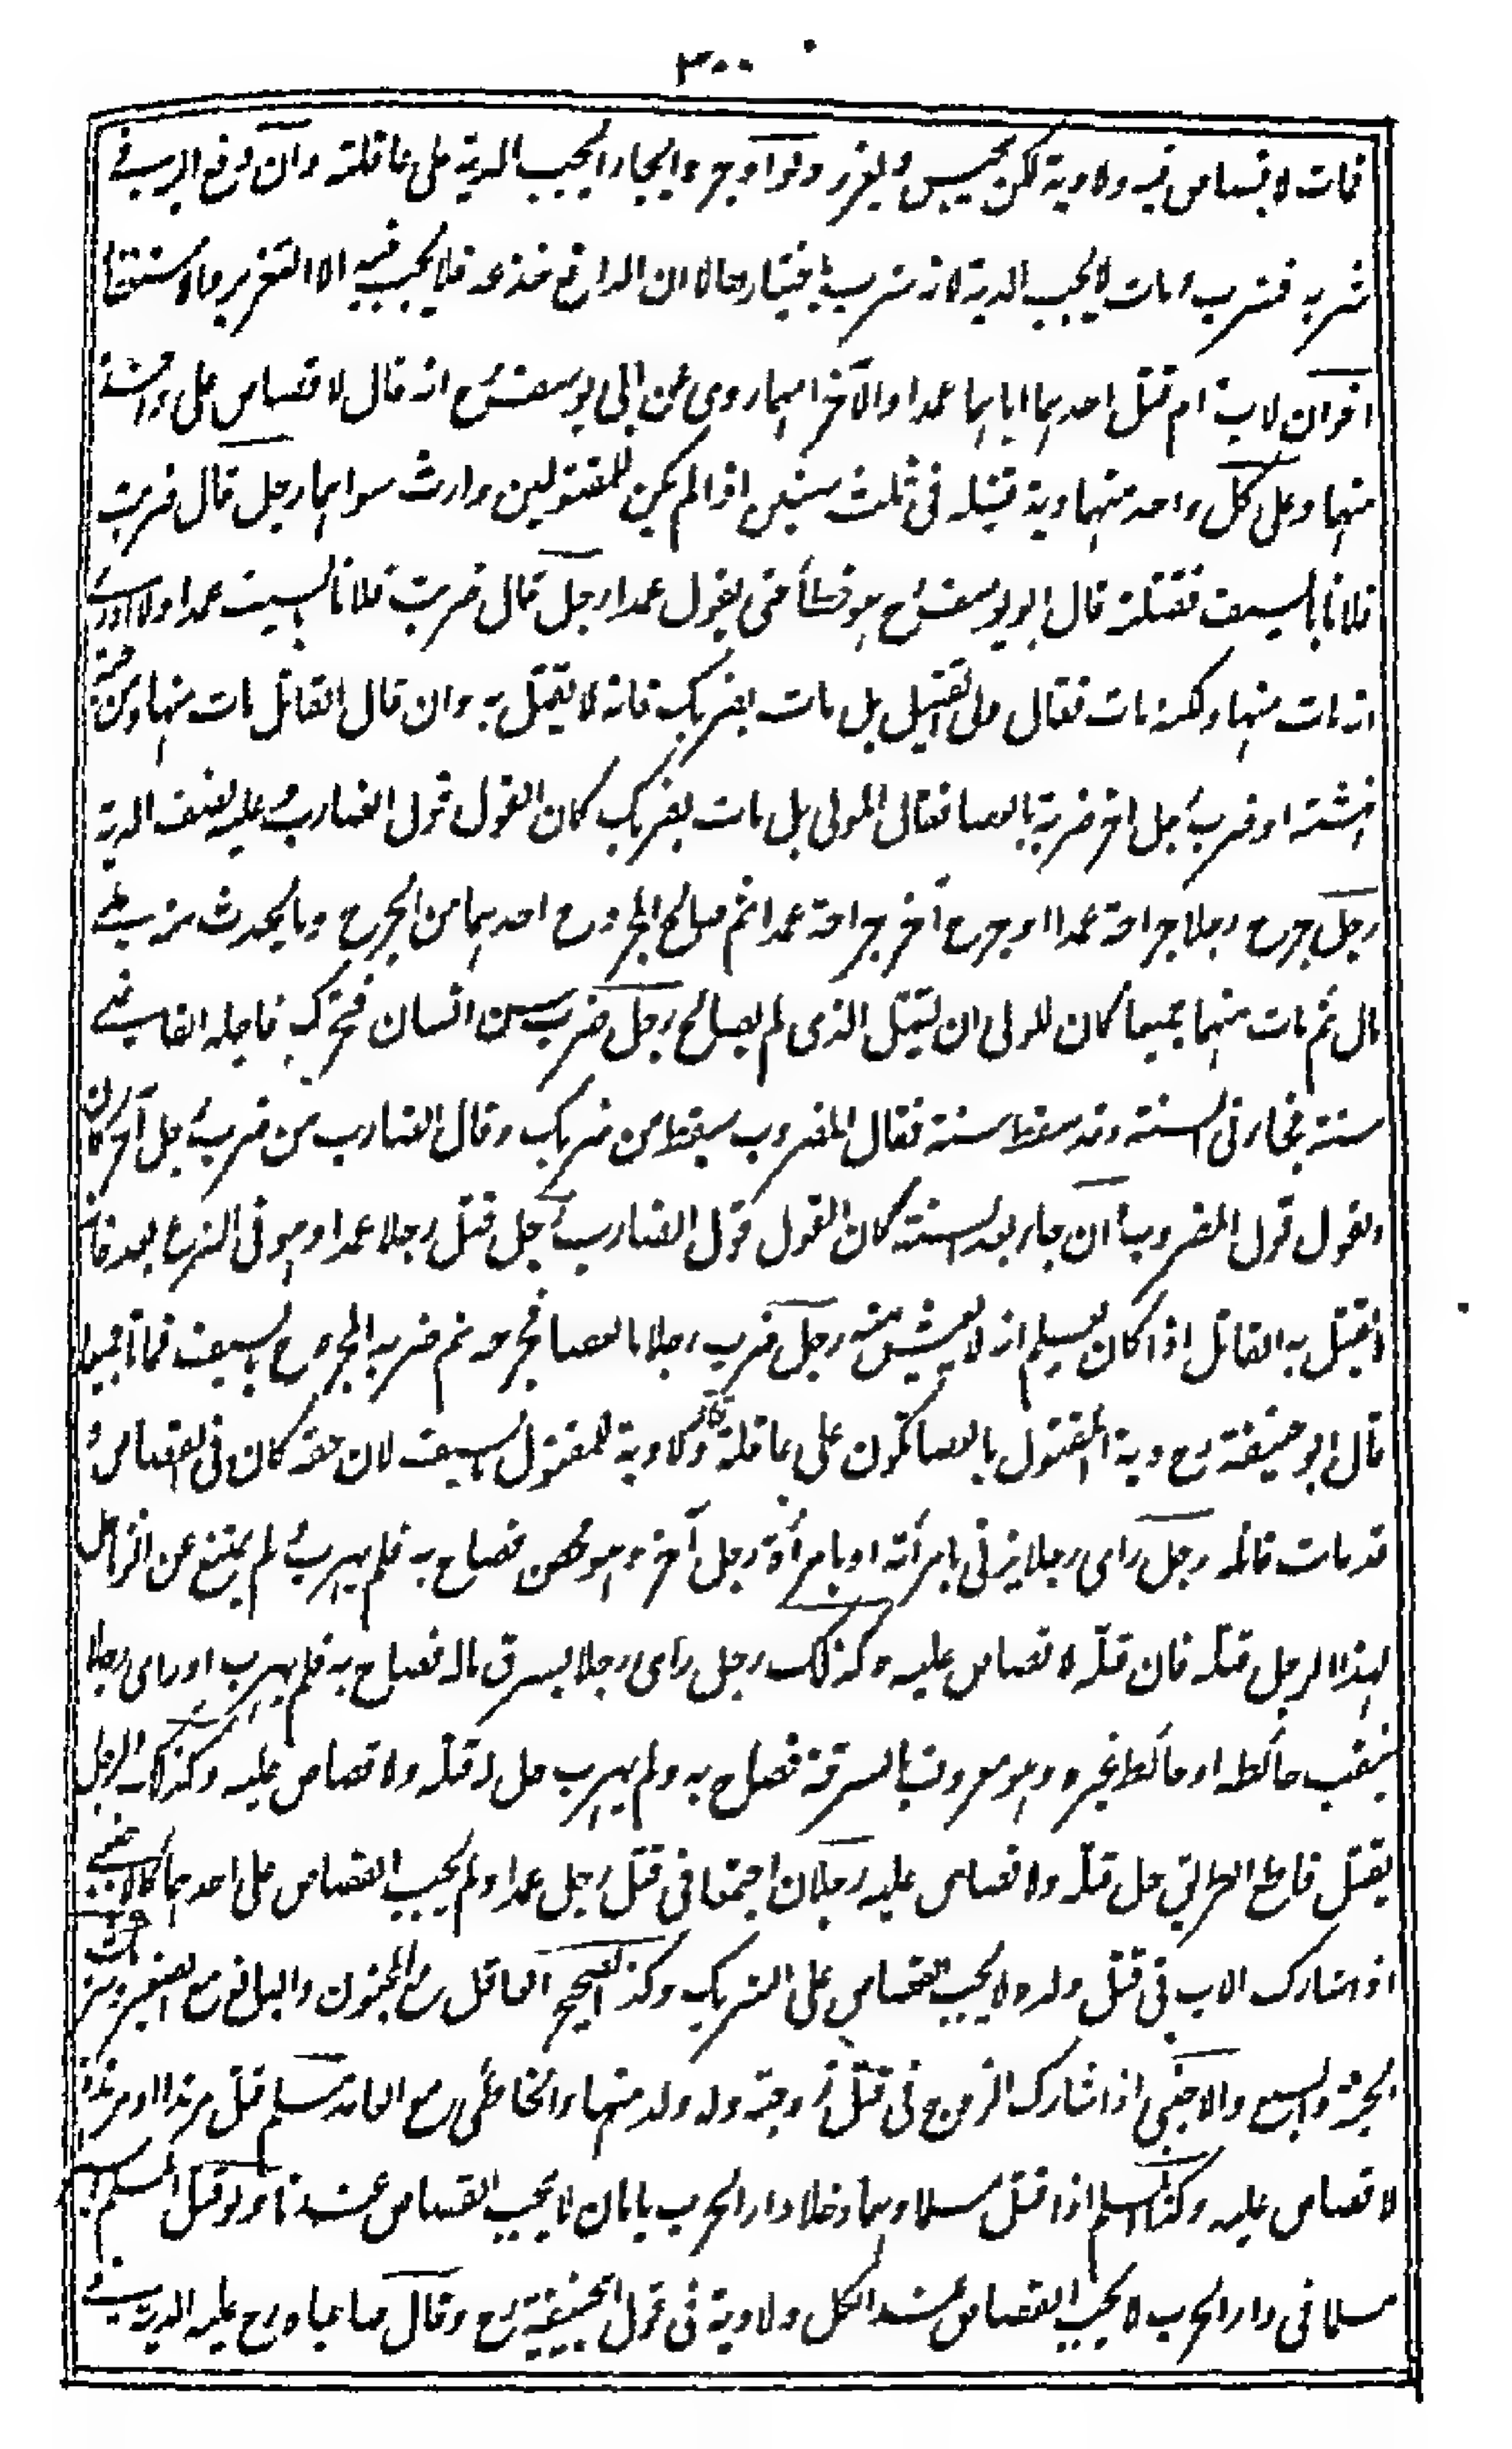 ٣٠٠
فمات لا قصاص فيه ولا دية لكن يحبس ويعزر ولو اوجره ايجارا يجب الدية على عاقلته وان دفع اليه في
شربه فشرب ومات لا يجب الدية لانه شرب باختياره الا ان الدافع خدعه فلا يجب فيه الا التعزير والاستغفار
اخوان لاب وام قتل احدهما اباهما عمدا والآخر امهما روى عن ابى يوسف رح انه قال لا قصاص على واحد
منهما وعلى كل واحد منهما دية قتيله فى ثلث سنين اذا لم يكن للمقتولين وارث سواهما رجل قال ضربت
فلانا بالسيف فقتلته قال ابو يوسف رح هو خطأ حتى يقول عمدا رجل قال ضربت فلانا بالسيف عمدا ولا ادرى
انه مات منها ولكنه مات فقال ولى القتيل بل مات بضربك فانه لا يقتل به وان قال القاتل مات منها ومن حية
نهشته او ضرب رجل آخر ضربه بالعصا فقال المولى بل مات بضربك كان القول قول الضارب وعليه نصف الدية
رجل جرح رجلا جراحة عمدا او جرح آخر جراحة عمدا ثم صالح المجروح احدهما من الجرح وما يحدث منه على
مال ثم مات منهما جميعا كان للولى ان يقتل الذى لم يصالح رجل ضرب سن انسان فتحرك فاجله القاضى
سنة فجاء فى السنة وقد سقط سنه فقال المضروب سقط من ضربك وقال الضارب من ضرب رجل آخر كان
القول قول المضروب وان جاء بعد السنة كان القول قول الضارب رجل قتل رجلا عمدا وهو فى النزع بعد فانه
يقتل به القاتل اذا كان يعلم انه لا يعيش منه رجل ضرب رجلا بالعصا فجرحه ثم ضربه المجروح بالسيف فماتا جميعا
قال ابو حنيفة رح دية المقتول بالعصا تكون على عاقلة قاتله ولا دية للمقتول بالسيف لان حقه كان فى القصاص و
قد مات قاتله رجل رأى رجلا يزنى بامرأته او بامرأة رجل آخر وهو محصن فصاح به فلم يهرب ولم يمتنع عن الزنا حل
لهذا الرجل قتله فان قتله لا قصاص عليه وكذلك رجل رأى رجلا يسرق ماله فصاح به فلم يهرب او رأى رجلا
ينقب حائطه او حائط غيره وهو معروف بالسرقة فصاح به ولم يهرب حل له قتله ولا قصاص عليه وكذلك الرجل
يقتل قاطع الطريق حل قتله ولا قصاص عليه رجلان اجتمعا فى قتل رجل عمدا ولم يجب القصاص على احدهما كالاجنبى
اذا شارك الاب فى قتل ولده لا يجب القصاص على الشريك وكذا الصحيح العاقل مع المجنون والبالغ مع الصغير وشريك
الحية والسبع والاجنبى اذا شارك الزوج فى قتل زوجته وله ولد منها والخاطئ مع العامد مسلم قتل مرتدا او مرتدة
لا قصاص عليه وكذا المسلم اذا قتل مسلما وهما دخلا دار الحرب بامان لا يجب القصاص عندنا ولو قتل المسلم
مسلما فى دار الحرب لا يجب القصاص عند الكل ولا دية فى قول ابى حنيفة رح وقال صاحباه رح عليه الدية فى